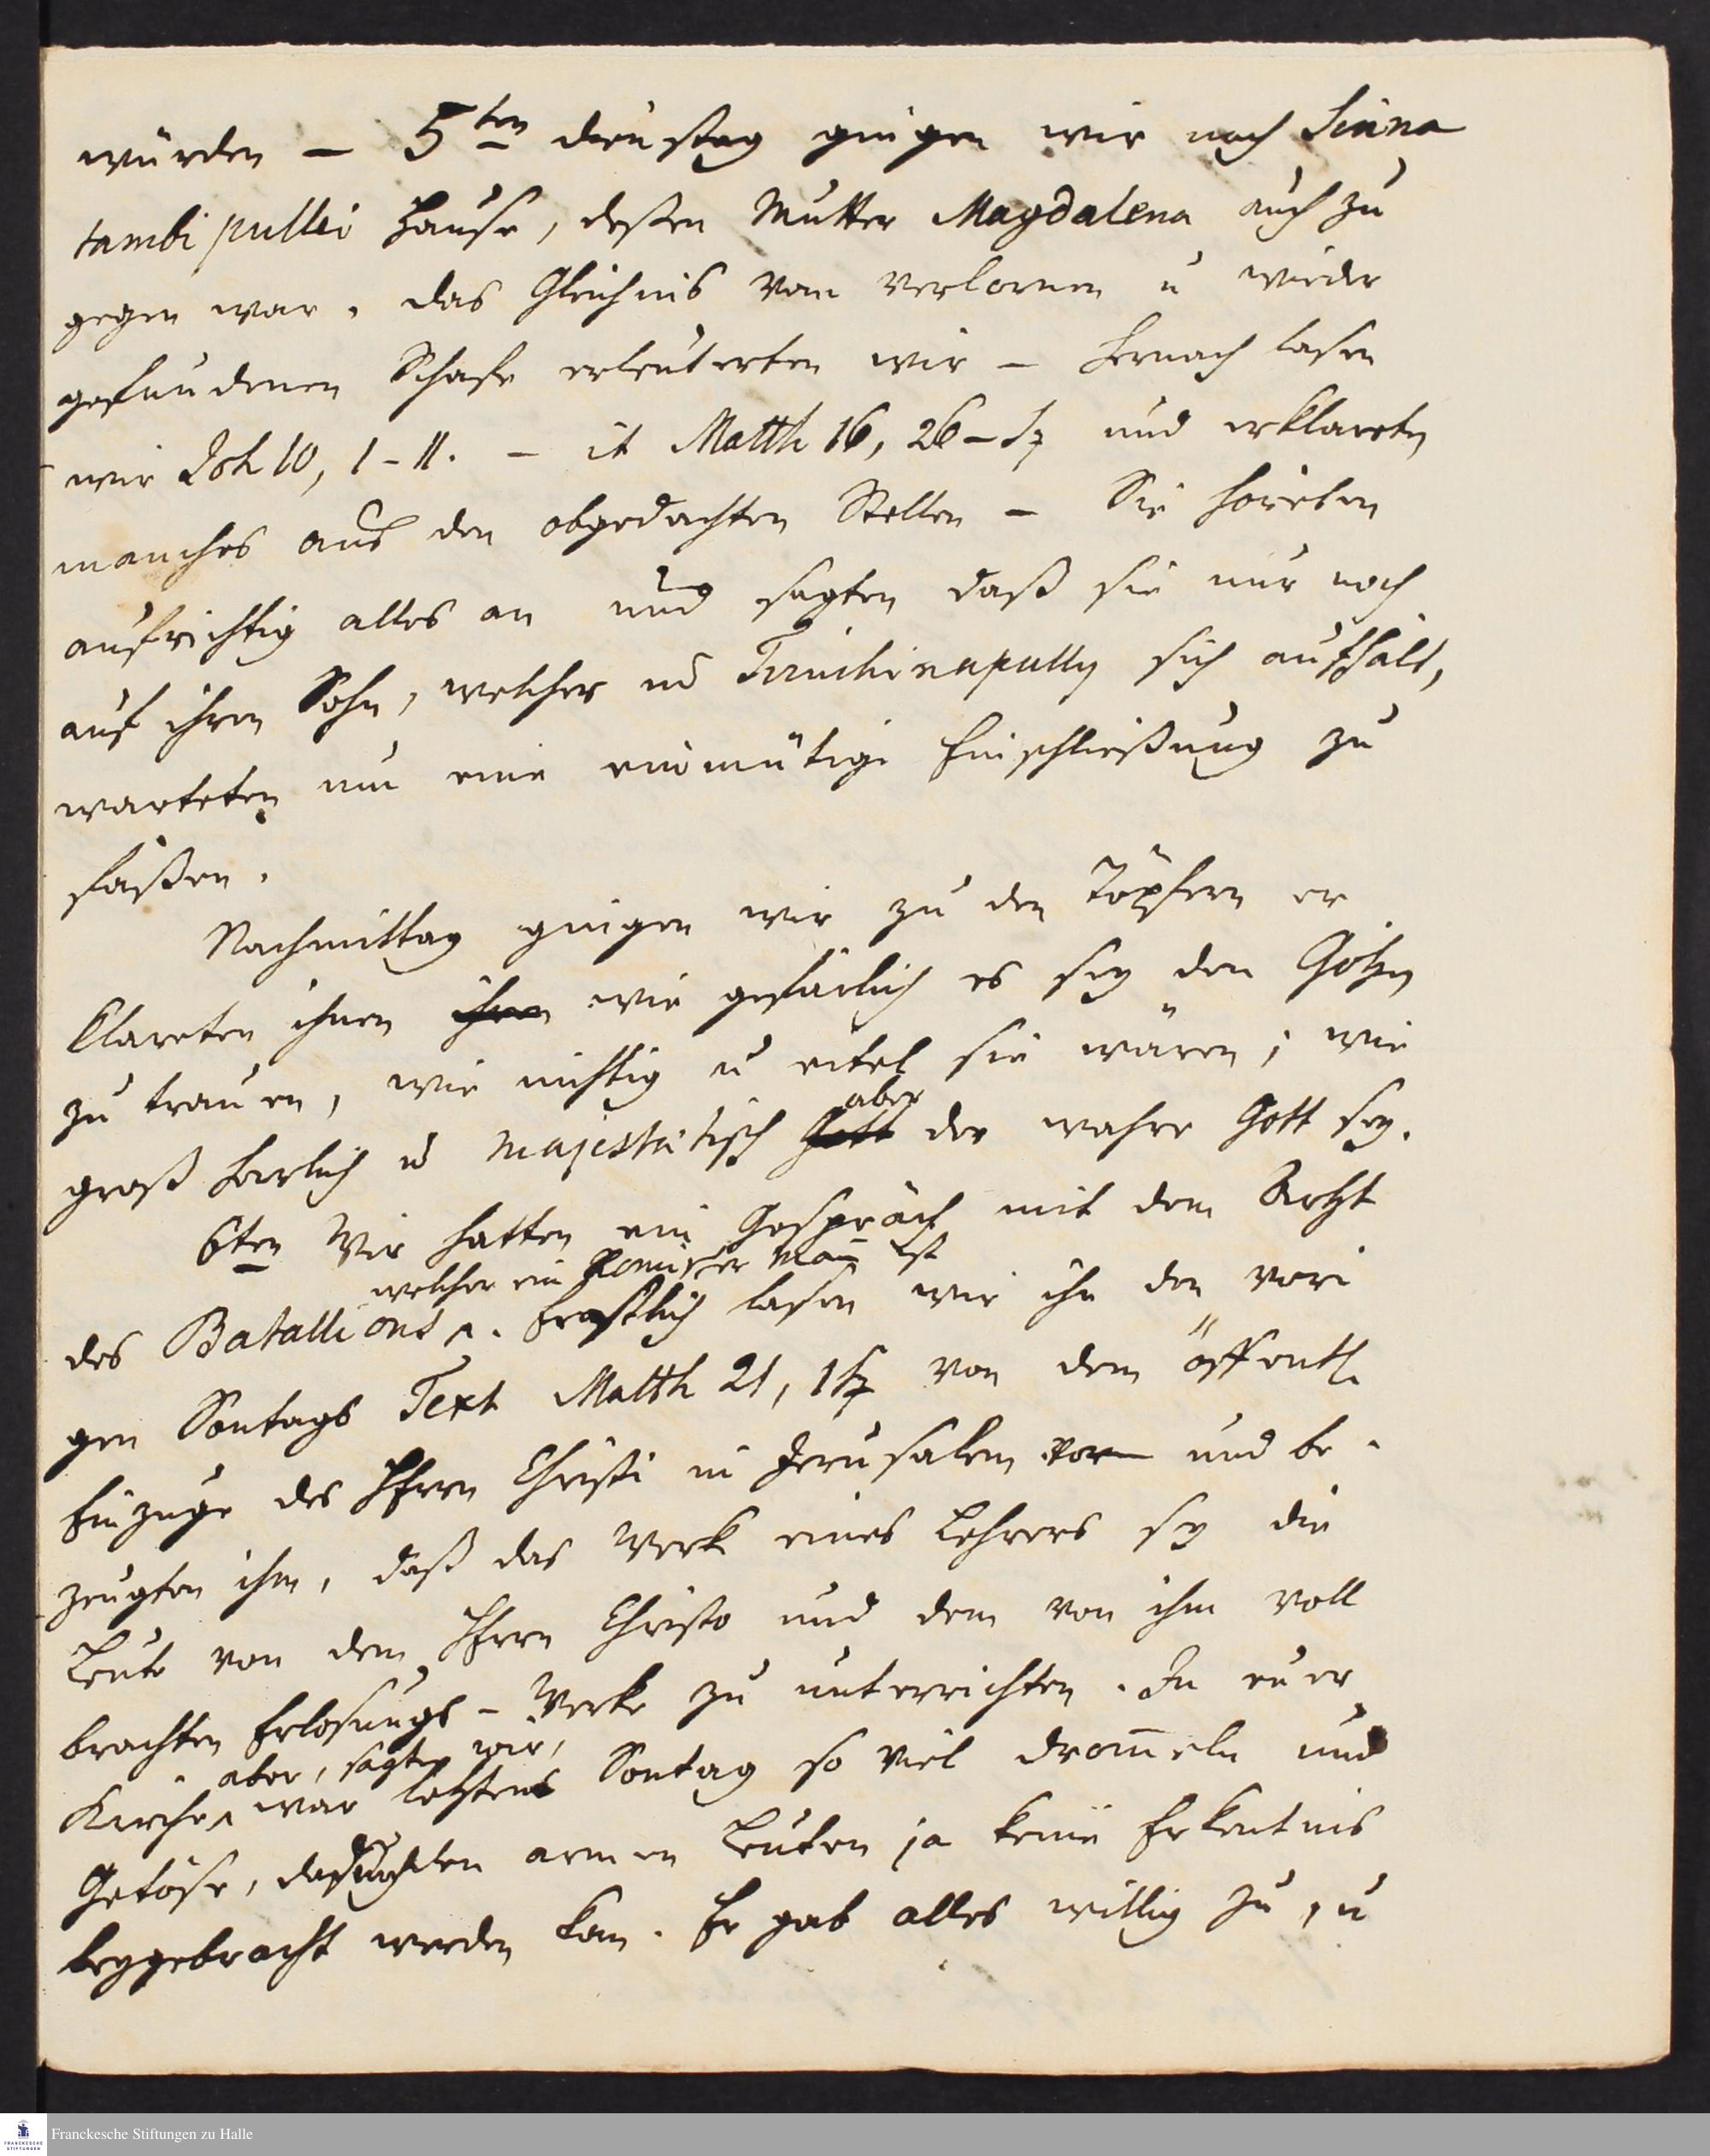 würden – 5ten dienstag giengen wir nach Sinna
tambi pullei Hause, deßen Mutter Magdalena auch zu
gegen war. das Gleichnis vom verlornen u wieder
gefundenen Schafe erleuterten wir – hernach lasen
wir Joh 10, 1-11. – it Matth 16, 26- sq und erklareten
manches aus den obgedachten Stellen – Sie höreten
aufrichtig alles an und sagten daß sie nur noch
auf ihren Sohn, welcher in Tirutschinapally sich aufhält,
warteten um eine einmütige Entschließung zu
faßen.
Nachmittag giengen wir zu den Töpfern er
klareten ihnen ihren wie gefärlich es sey den Götzen
zu trauen, wie nichtig u eitel sie wären; wie
groß herlich u majestätisch Gott aber der wahre Gott sey.
6ten Wir hatten ein Gespräch mit dem Artzt
des Batallions, welcher ein Römischer Mañ ist. Erstlich lasen wir ihm den vori
gen Sontags Text Matth 21, 1 sq von dem öffentl.
Einzuge des HErrn Christi in Jerusalem vor und be-
zeugten ihm, daß das Werk eines Lehrers sey die
Leute von dem HErrn Christo und dem von ihm voll
brachten Erlosungs-Werke zu unterrichten. In eurer
Kirche aber, sagten wir, war letztens Sontag so viel drom̃eln und
Getöse, dadurch den armen Leuten ja keine Erkentnis
beygebracht werden kan. Er gab alles willig zu, u
Franckesche Stiftungen zu Halle